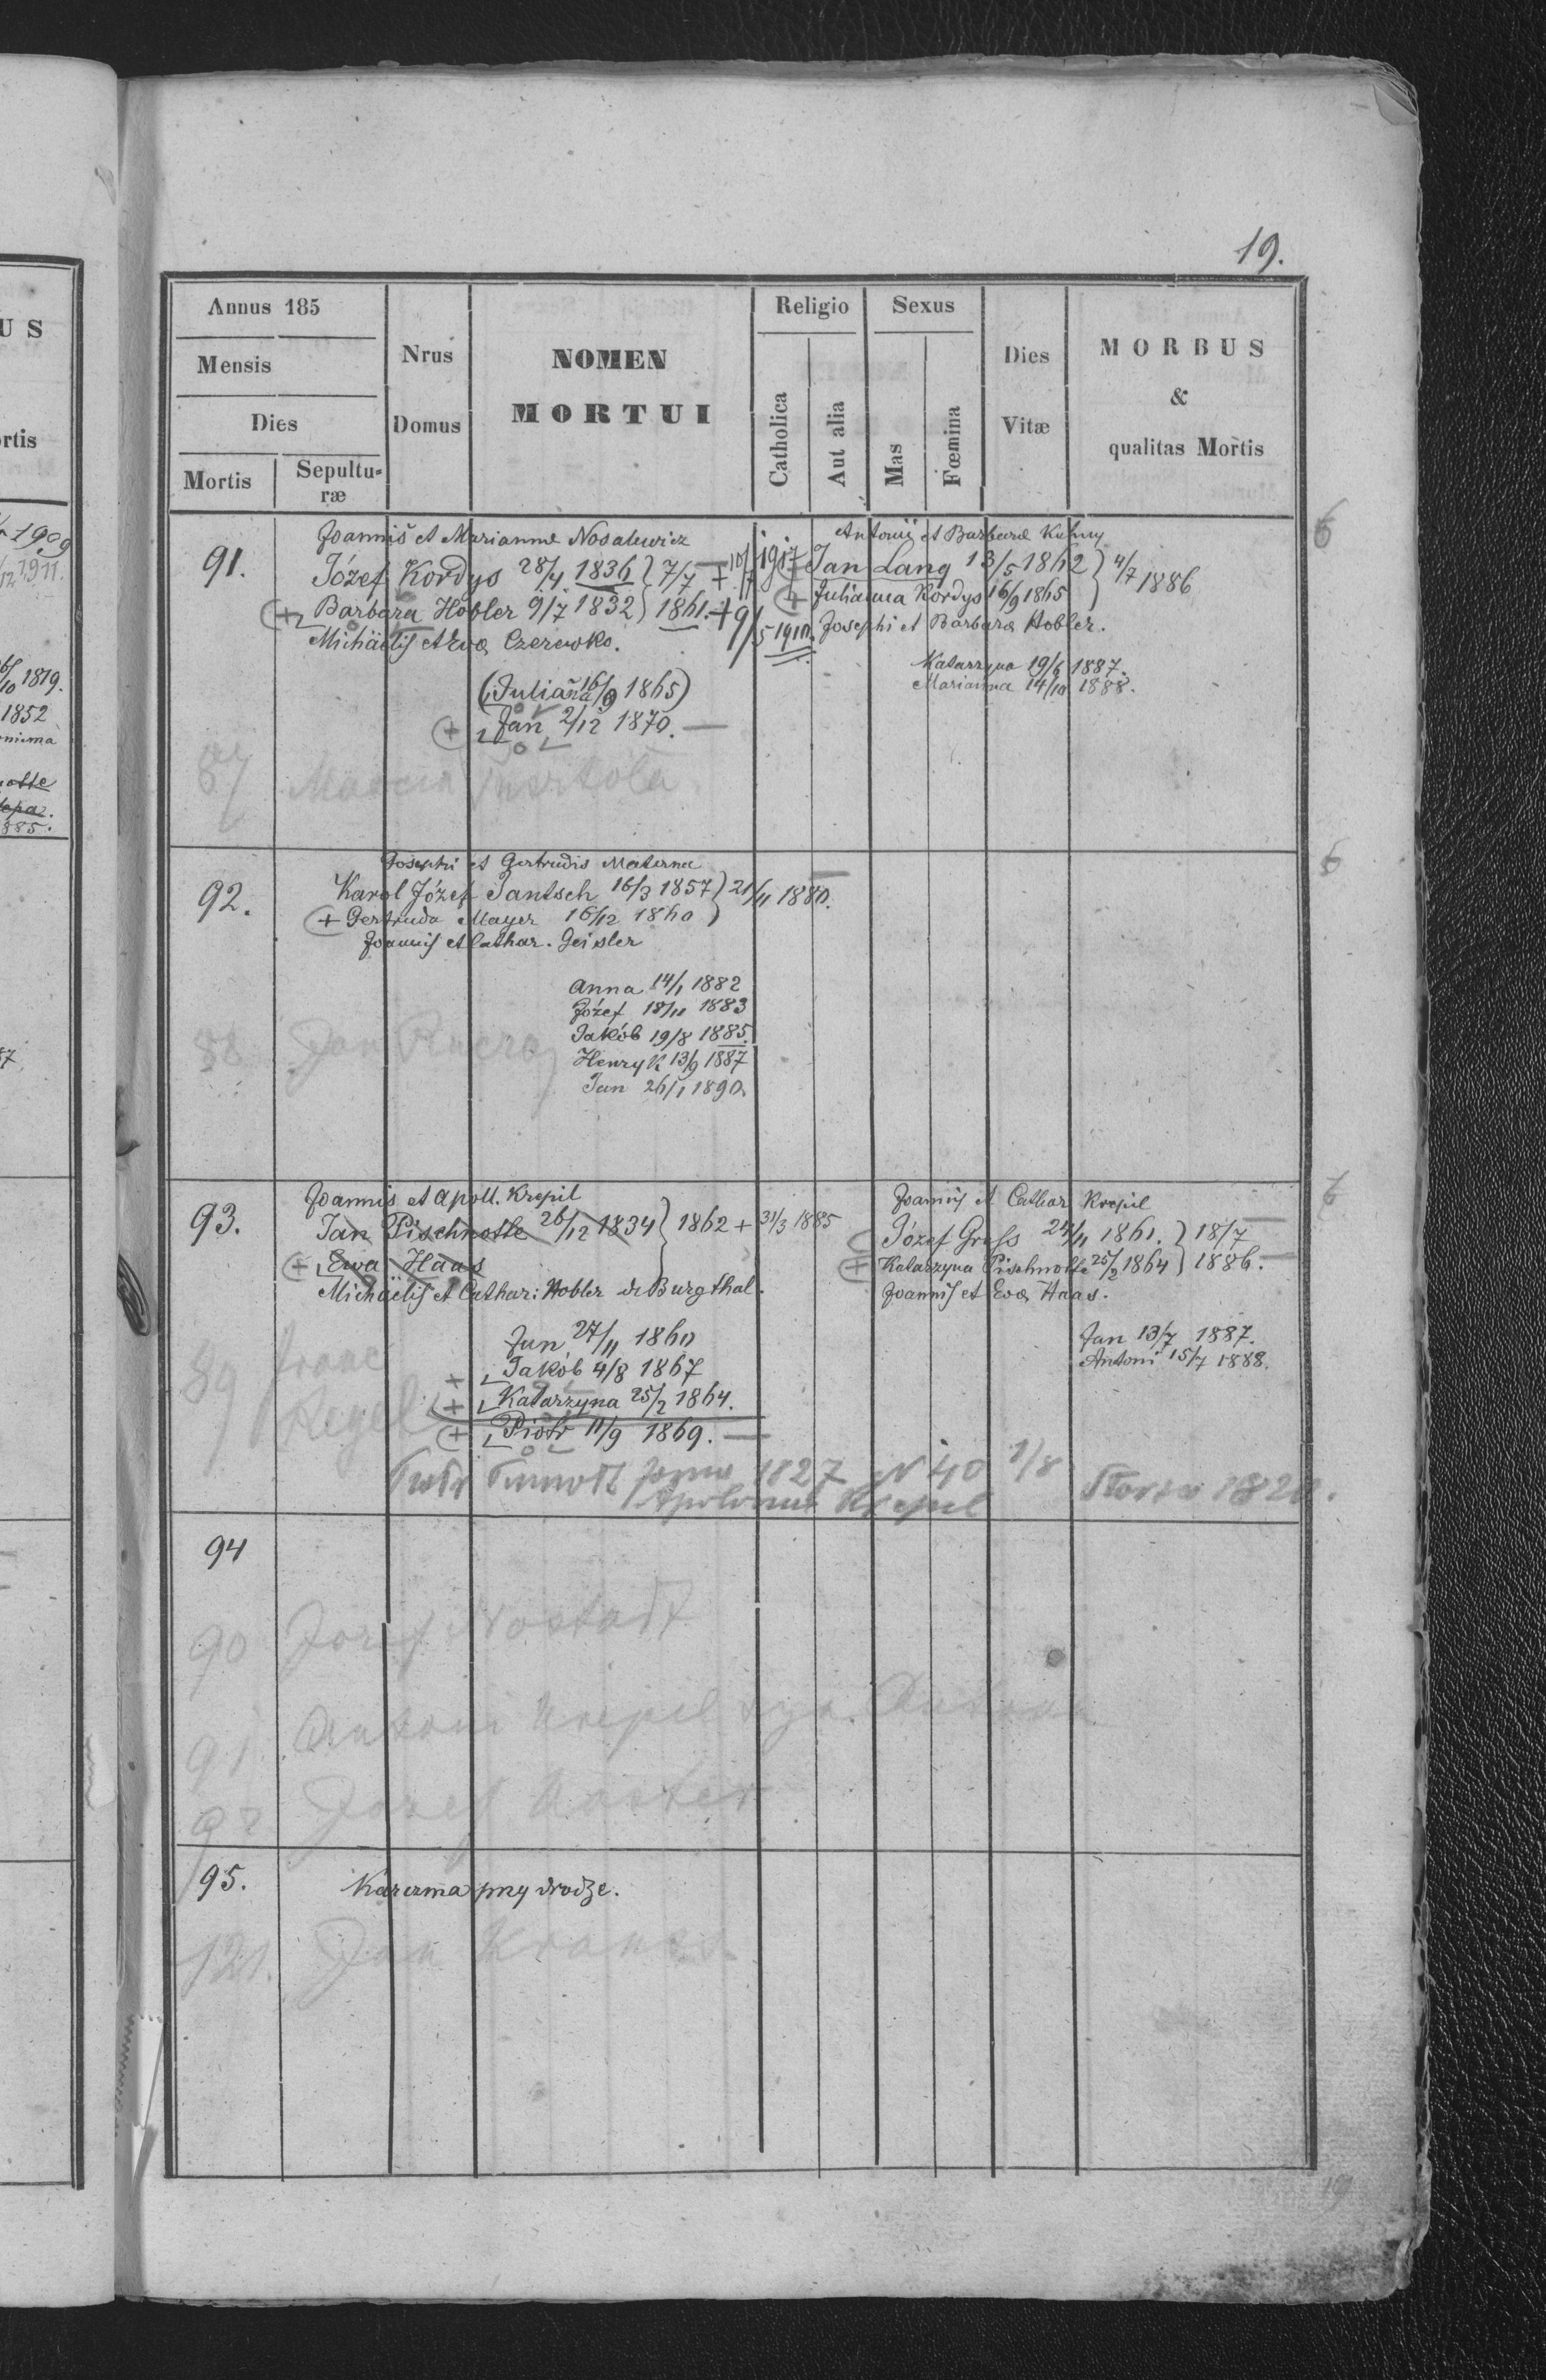 19.
Annus 185
Mensis
Dies
Mortis
Sepultu=
ræ
Nrus
Domus
NOMEN
MORTUI
Religio
Catholica
Aut alia
Sexus
Mas
Fœmina
Dies
Vitæ
MORBUS
&
qualitas Mortis
91.
Joannis et Marianne Nosalewicz
Józef Kordys 28/4 1836 } 7/7 + 10/7 1917
Barbara Hobler 9/7 1832 } 1861. + 9/5 1910.
Michäelis et Evæ Czerewko.
(Julianna 16/9 1865)
Jan 2/12 1870.
Antonii et Barbaræ
Jan Lang 13/5 1862 } 4/7 1886
Julianna Kordys 16/9 1865
Josephi et Barbaræ Hobler.
Katarzyna 19/6 1887.
Marianna 14/10 1888.
87
92.
Josephi et Gertrudis Materna
Karol Józef Jantsch 16/3 1857 } 21/11 1880.
+ Gertruda Mayer 16/12 1860
Joannis et Cathar. Geisler
Anna 14/1 1882
Józef 18/11 1883
Jakób 19/8 1885.
Henryk 13/9 1887
Jan 26/1 1890.
88 Jan
93.
Joannis et Apoll. Krepil
Jan Pischnotte 26/12 1834 } 1862 + 31/3 1885
+ Ewa Haas
Michäelis et Cathar: Hobler de Burgthal.
Jan 27/11 1860
+ Jakób 4/8 1867
+ Katarzyna 25/2 1864.
+ Piotr 11/9 1869.
Joannis et Cathar Krepil
Józef Gross 24/11 1861. } 18/7
Katarzyna Pischnotte 25/2 1864 } 1886.
Joannis et Evæ Haas.
Jan 13/7 1887.
Antoni 15/7 1888.
89
1827 N 40 1/8
Krepil
94
90 Jozef
91 Antoni Krepil
92 Jozef
95.
Karczma przy drodze.
121. Jan
19